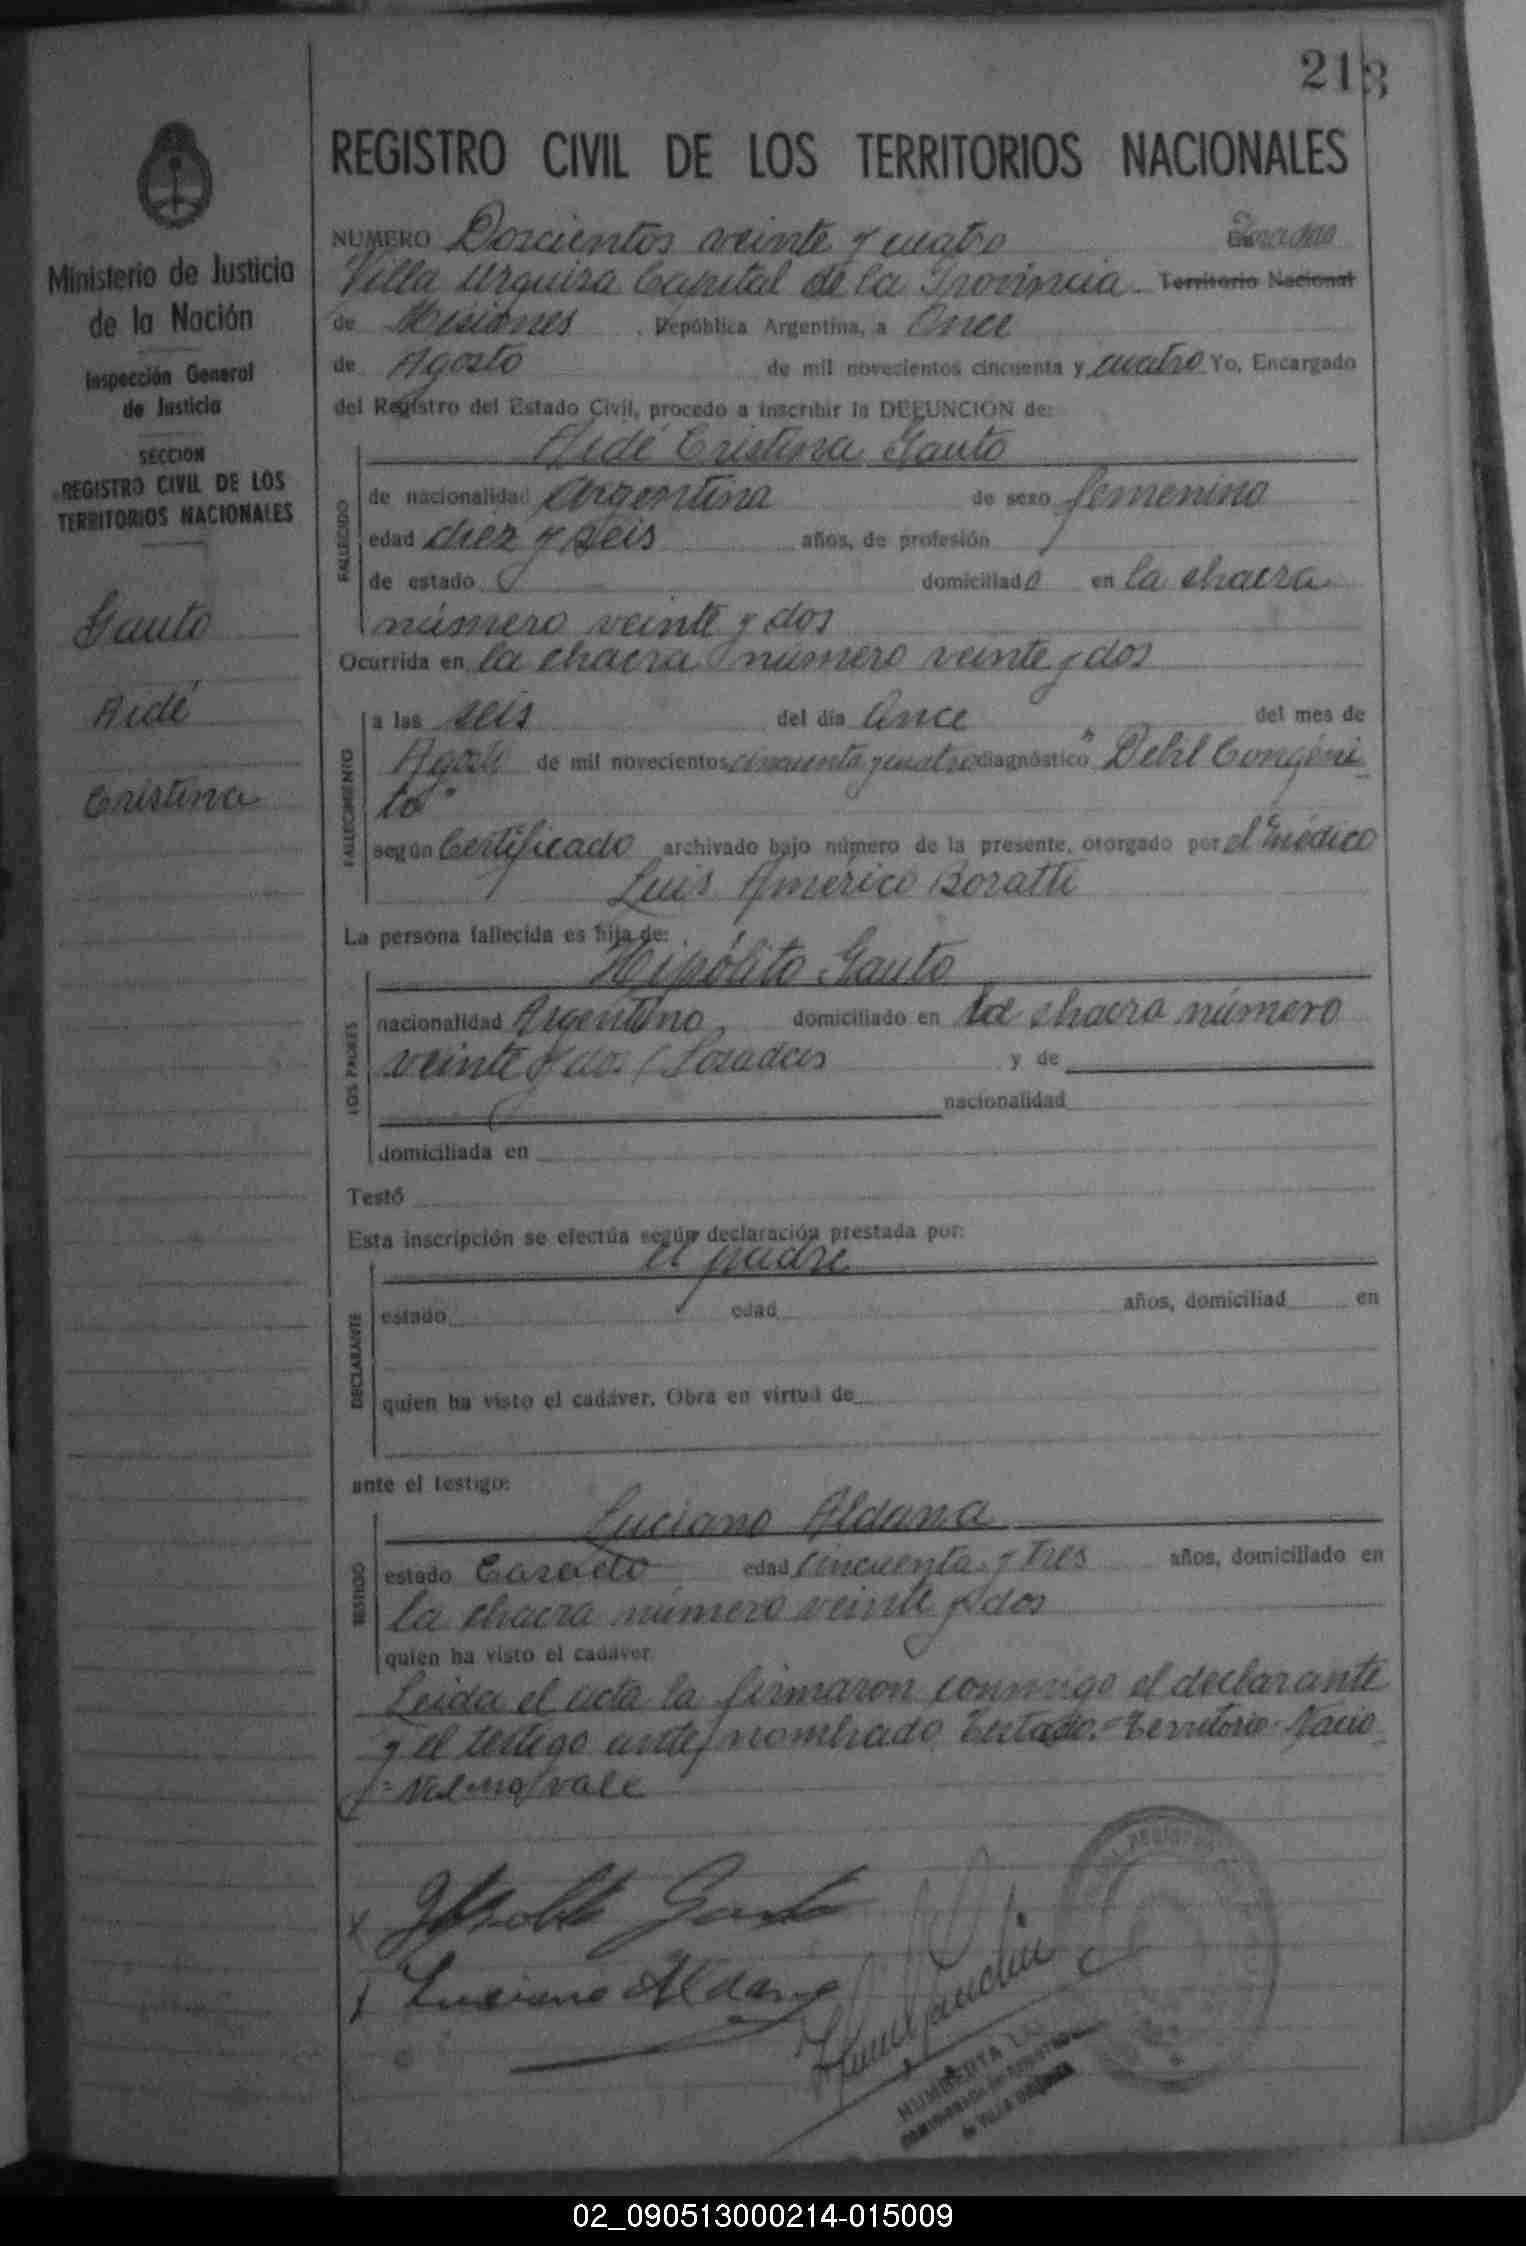 213
REGISTRO CIVIL DE LOS TERRITORIOS NACIONALES
Ministerio de Justicia
de la Nación
Inspección General
de Justicia
SECCION
REGISTRO CIVIL DE LOS
TERRITORIOS NACIONALES
Gauto
Aidé
Cristina
NUMERO Doscientos veinte y cuatro Posadas
Villa Urquiza Capital de la Provincia Territorio Nacional
de Misiones República Argentina, a Once
de Agosto de mil novecientos cincuenta y cuatro Yo, Encargado
del Registro del Estado Civil, procedo a inscribir la DEFUNCION de:
Aidé Cristina Gauto
FALLECIDO
de nacionalidad Argentina de sexo femenino
edad diez y seis años, de profesión
de estado domiciliado en la chacra
número veinte y dos
Ocurrida en la chacra número veinte y dos
FALLECIMIENTO
a las seis del día Once del mes de
Agosto de mil novecientos cincuenta y cuatro diagnóstico "Debil Congéni
to"
según Certificado archivado bajo número de la presente, otorgado por el médico
Luis Américo Boratti
La persona fallecida es hija de:
Hipólito Gauto
LOS PADRES
nacionalidad Argentino domiciliado en la chacra número
veinte y dos / Posadas y de
nacionalidad
domiciliada en
Testó
Esta inscripción se efectúa según declaración prestada por:
el padre
DECLARANTE
estado edad años, domiciliad en
quien ha visto el cadáver. Obra en virtud de
ante el testigo:
Luciano Aldana
TESTIGO
estado Casado edad Cincuenta y Tres años, domiciliado en
la chacra número veinte y dos
quien ha visto el cadáver
Leida el acta la firmaron conmigo el declarante
y el testigo ante nombrado Testado = Territorio Nacio
= Nal = no vale
Hipolito Gauto
Luciano Aldana
HUMBERTA
de VILLA URQUIZA
02_090513000214-015009